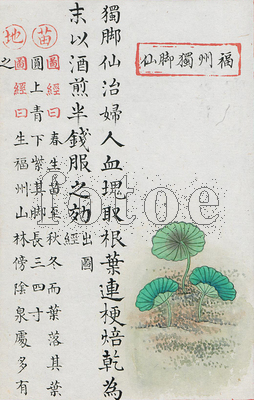 福州獨脚仙
獨脚仙治婦人血塊取根葉連梗焙乾為
末以酒煎半錢服之効出圖經
苗圖經曰春生苗至秋冬而葉落其葉
圓上青下紫其脚長三四寸
地圖經曰生福州山林傍陰泉處多有
之
fotoe